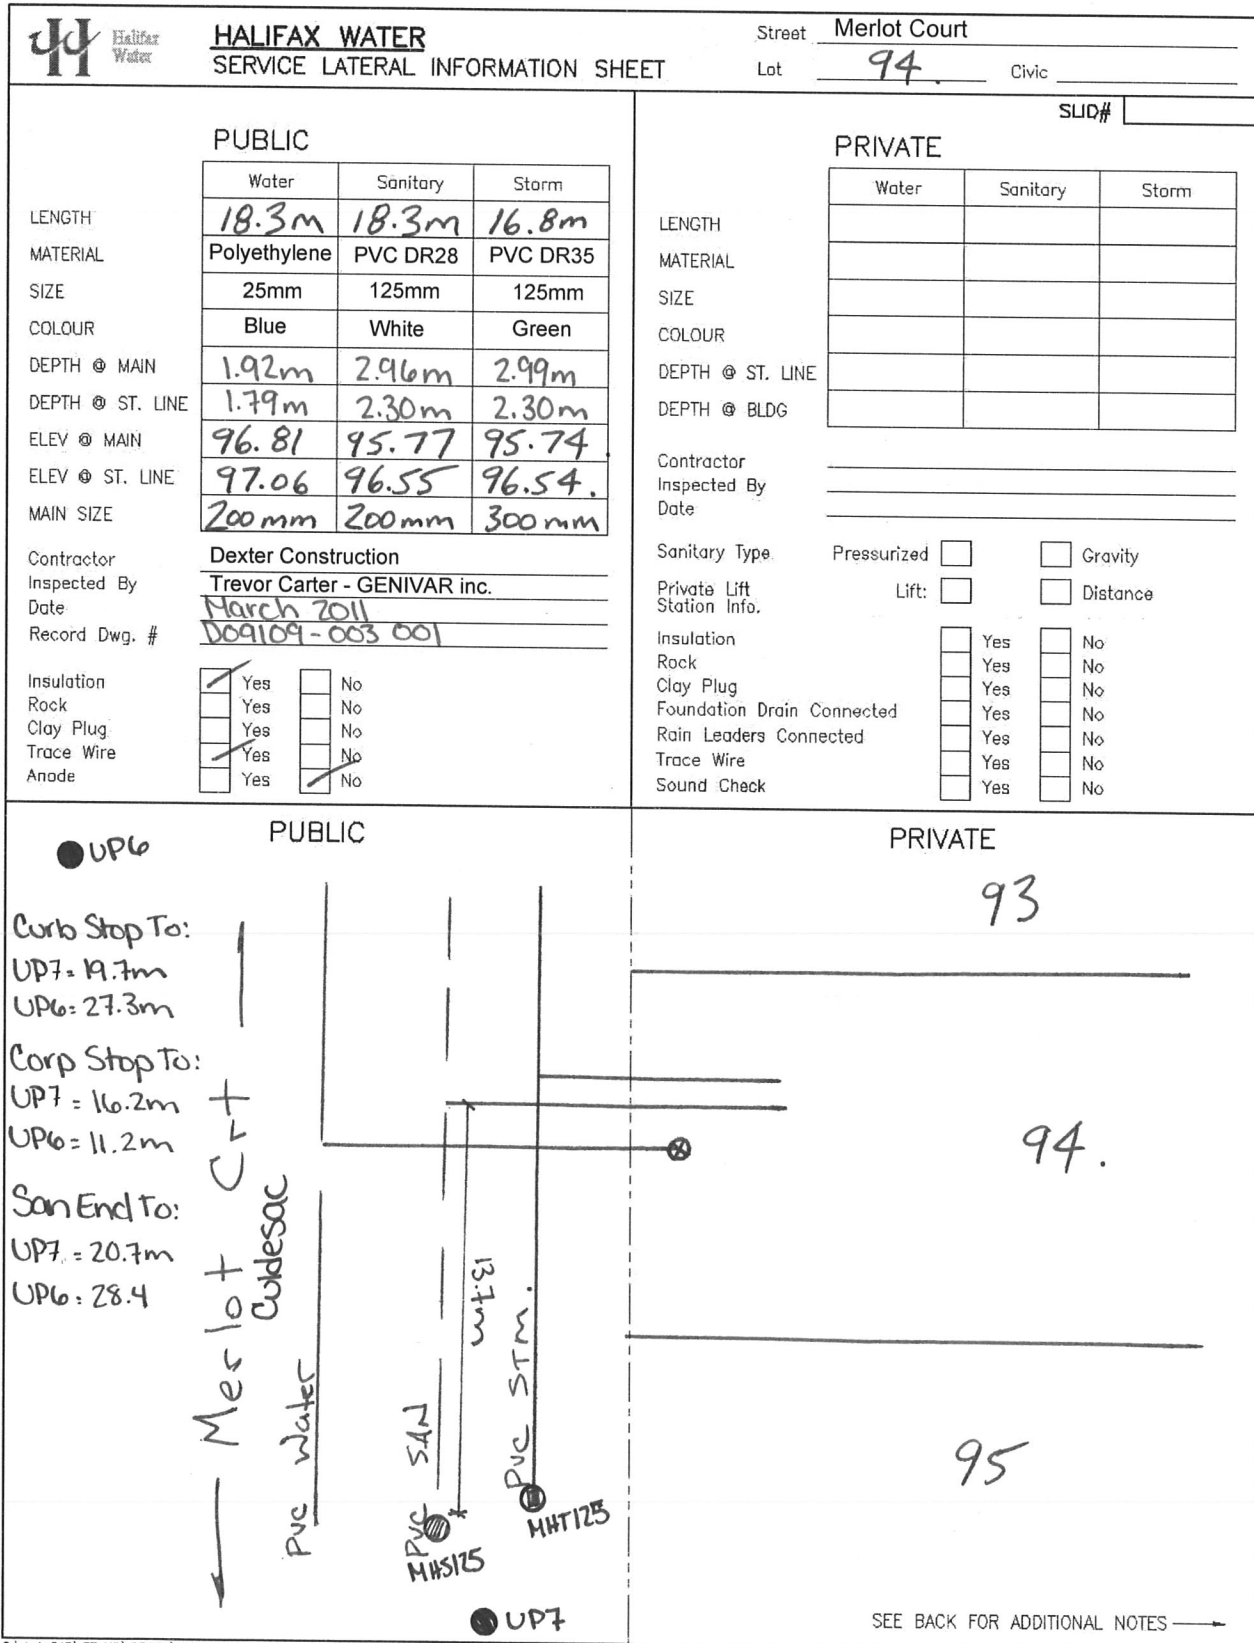 Halifax
Water
HALIFAX WATER
SERVICE LATERAL INFORMATION SHEET
Street Merlot Court
Lot 94. Civic
SLID#
PUBLIC
Water Sanitary Storm
LENGTH 18.3m 18.3m 16.8m
MATERIAL Polyethylene PVC DR28 PVC DR35
SIZE 25mm 125mm 125mm
COLOUR Blue White Green
DEPTH @ MAIN 1.92m 2.96m 2.99m
DEPTH @ ST. LINE 1.79m 2.30m 2.30m
ELEV @ MAIN 96.81 95.77 95.74
ELEV @ ST. LINE 97.06 96.55 96.54.
MAIN SIZE 200mm 200mm 300mm
Contractor Dexter Construction
Inspected By Trevor Carter - GENIVAR inc.
Date March 2011
Record Dwg. # D09109-003 001
Insulation Yes No
Rock Yes No
Clay Plug Yes No
Trace Wire Yes No
Anode Yes No
PRIVATE
Water Sanitary Storm
LENGTH
MATERIAL
SIZE
COLOUR
DEPTH @ ST. LINE
DEPTH @ BLDG
Contractor
Inspected By
Date
Sanitary Type Pressurized Gravity
Private Lift Lift: Distance
Station Info.
Insulation Yes No
Rock Yes No
Clay Plug Yes No
Foundation Drain Connected Yes No
Rain Leaders Connected Yes No
Trace Wire Yes No
Sound Check Yes No
PUBLIC
UP6
Curb Stop To:
UP7= 19.7m
UP6= 27.3m
Corp Stop To:
UP7 = 16.2m
UP6 = 11.2m
San End To:
UP7 = 20.7m
UP6= 28.4
Merlot Crt
Culdesac
PVC Water
PVC SAN
13.7m
PVC STM.
MHS125
MHT125
UP7
PRIVATE
93
94.
95
SEE BACK FOR ADDITIONAL NOTES